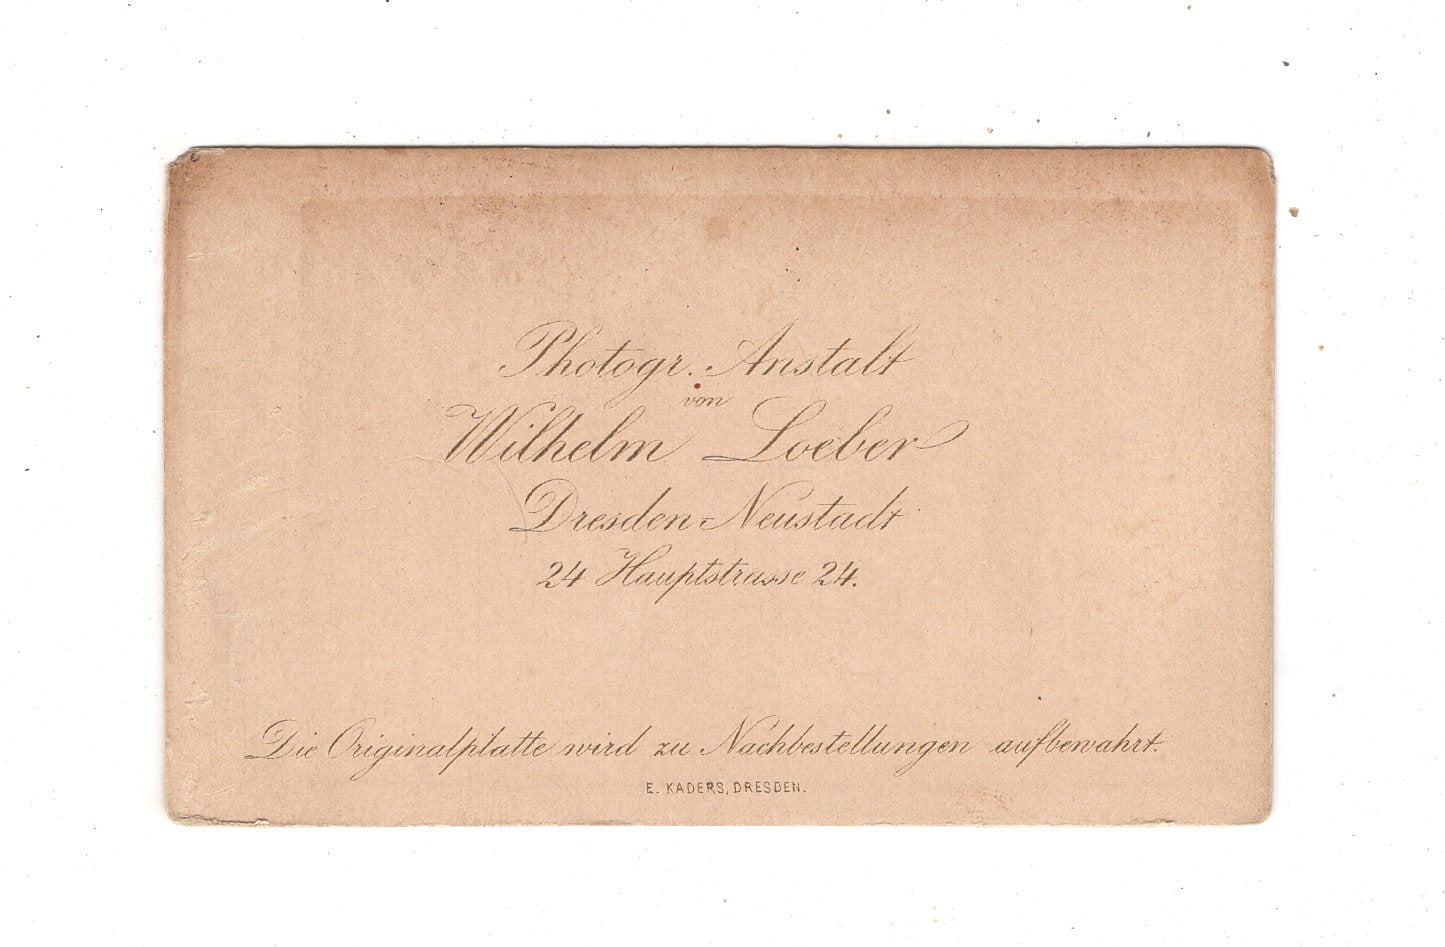 Photogr. Anstalt
von
Wilhelm Loeber
Dresden-Neustadt
24 Hauptstrasse 24.
Die Originalplatte wird zu Nachbestellungen aufbewahrt.
E. KADERS, DRESDEN.